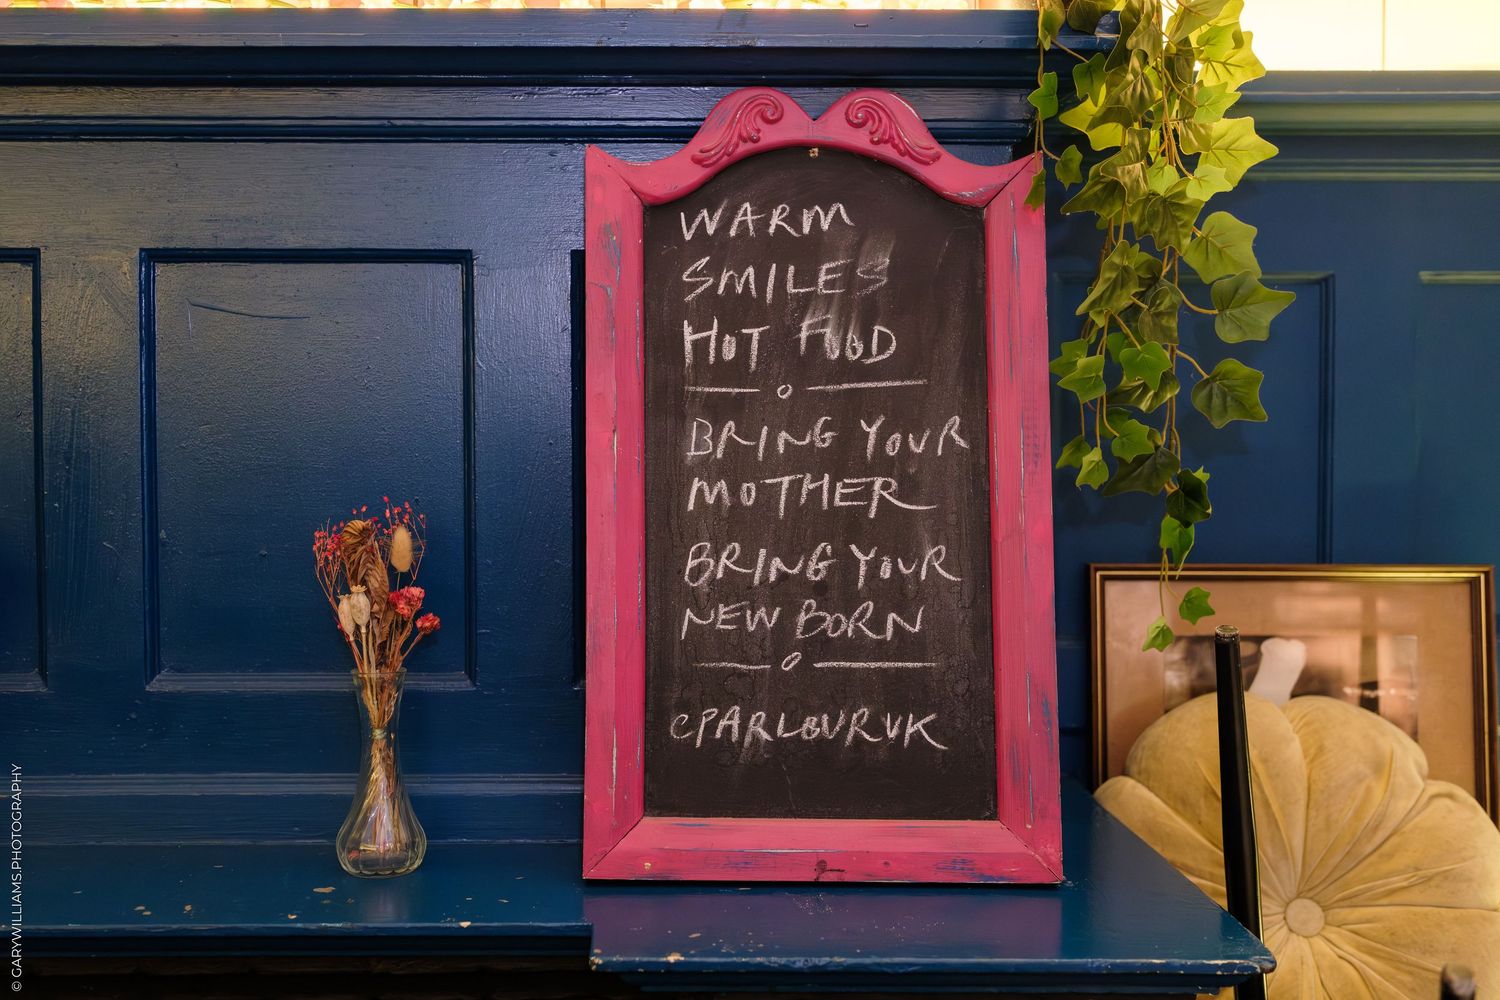 WARM
SMILES
HOT FOOD
BRING YOUR
MOTHER
BRING YOUR
NEW BORN
@PARLOURUK
© GARYWILLIAMS.PHOTOGRAPHY